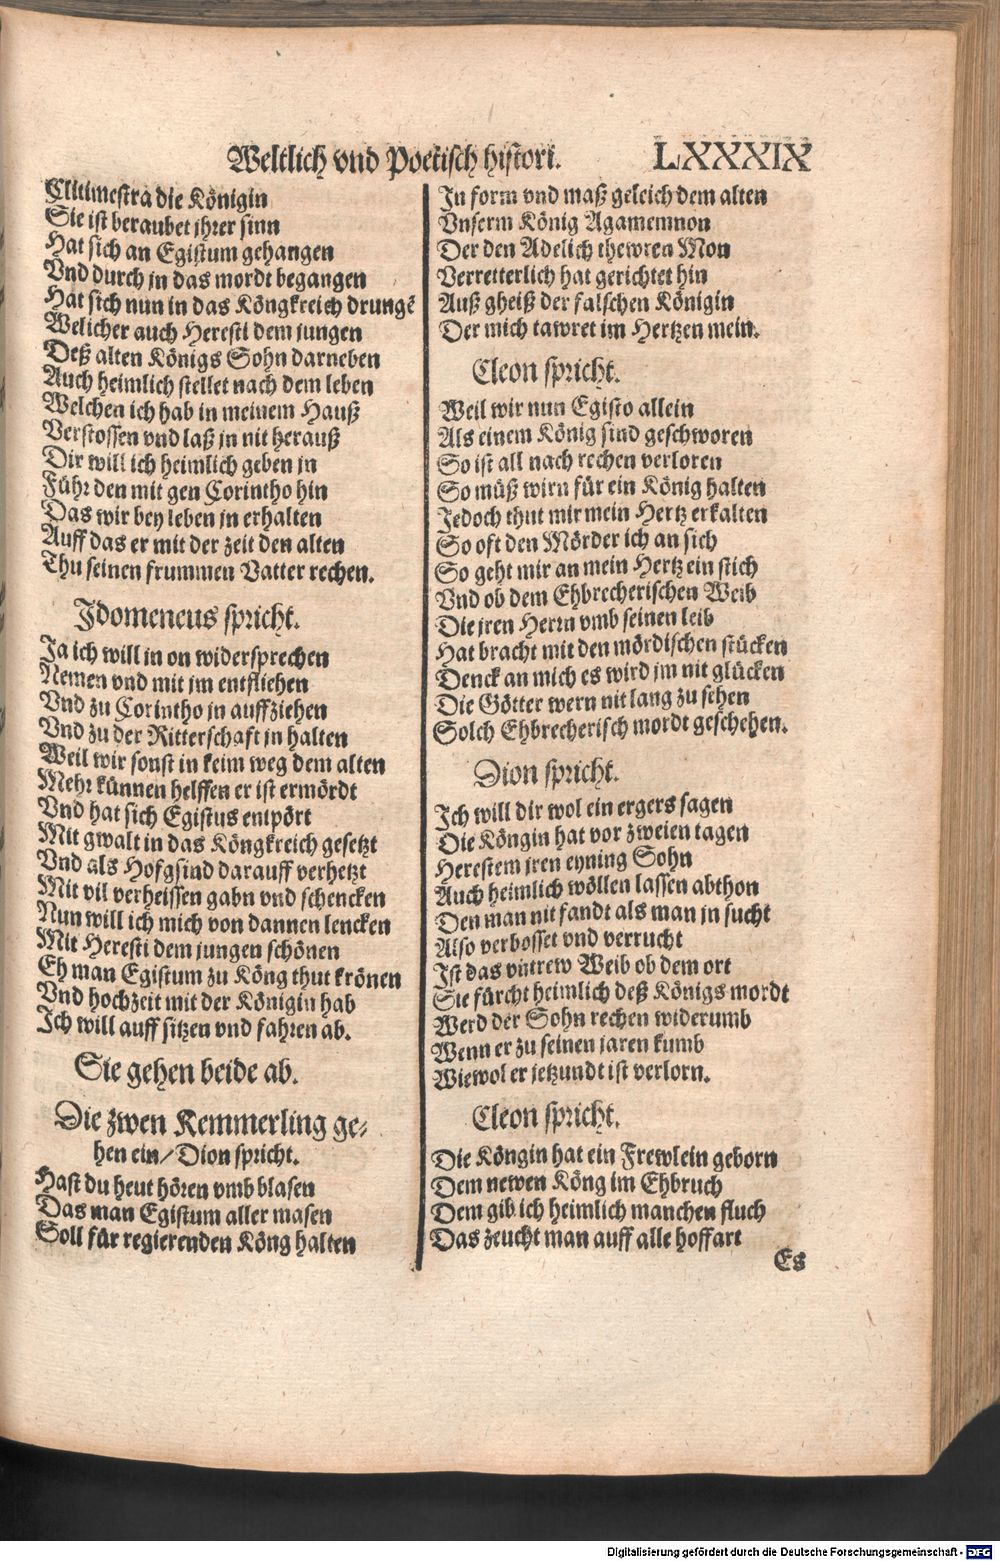 Weltlich vnd Poetisch histori. LXXXIX
Clitimestra die Königin
Sie ist beraubet jhrer sinn
Hat sich an Egistum gehangen
Vnd durch jn das mordt begangen
Hat sich nun in das Köngkreich drungē
Welicher auch Heresti dem jungen
Deß alten Königs Sohn darneben
Auch heimlich stellet nach dem leben
Welchen ich hab in meinem Hauß
Verstossen vnd laß jn nit herauß
Dir will ich heimlich geben jn
Führ den mit gen Corintho hin
Das wir bey leben jn erhalten
Auff das er mit der zeit den alten
Thu seinen frummen Vatter rechen.
Idomeneus spricht.
Ja ich will in on widersprechen
Nemen vnd mit jm entfliehen
Vnd zu Corintho jn auffziehen
Vnd zu der Ritterschaft jn halten
Weil wir sonst in keim weg dem alten
Mehr künnen helffen er ist ermördt
Vnd hat sich Egistus entpört
Mit gwalt in das Köngkreich gesetzt
Vnd als Hofgsind darauff verhetzt
Mit vil verheissen gabn vnd schencken
Nun will ich mich von dannen lencken
Mit Heresti dem jungen schönen
Eh man Egistum zu Köng thut krönen
Vnd hochzeit mit der Königin hab
Ich will auff sitzen vnd fahren ab.
Sie gehen beide ab.
Die zwen Kemmerling ge-
hen ein/ Dion spricht.
Hast du heut hören vmb blasen
Das man Egistum aller masen
Soll für regierenden Köng halten
In form vnd maß geleich dem alten
Vnserm König Agamemnon
Der den Adelich thewren Mon
Verretterlich hat gerichtet hin
Auß gheiß der falschen Königin
Der mich tawret im Hertzen mein.
Cleon spricht.
Weil wir nun Egisto allein
Als einem König sind geschworen
So ist all nach rechen verloren
So müß wirn für ein König halten
Jedoch thut mir mein Hertz erkalten
So oft den Mörder ich an sich
So geht mir an mein Hertz ein stich
Vnd ob dem Ehbrecherischen Weib
Die jren Herrn vmb seinen leib
Hat bracht mit den mördischen stücken
Denck an mich es wird jm nit glücken
Die Götter wern nit lang zu sehen
Solch Ehbrecherisch mordt geschehen.
Dion spricht.
Ich will dir wol ein ergers sagen
Die Köngin hat vor zweien tagen
Herestem jren eyning Sohn
Auch heimlich wöllen lassen abthon
Den man nit fandt als man jn sucht
Also verbosset vnd verrucht
Ist das vntrew Weib ob dem ort
Sie fürcht heimlich deß Königs mordt
Werd der Sohn rechen widerumb
Wenn er zu seinen jaren kumb
Wiewol er jetzundt ist verlorn.
Cleon spricht.
Die Köngin hat ein Frewlein geborn
Dem newen Köng im Ehbruch
Dem gib ich heimlich manchen fluch
Das zeucht man auff alle hoffart
Es
Digitalisierung gefördert durch die Deutsche Forschungsgemeinschaft - DFG